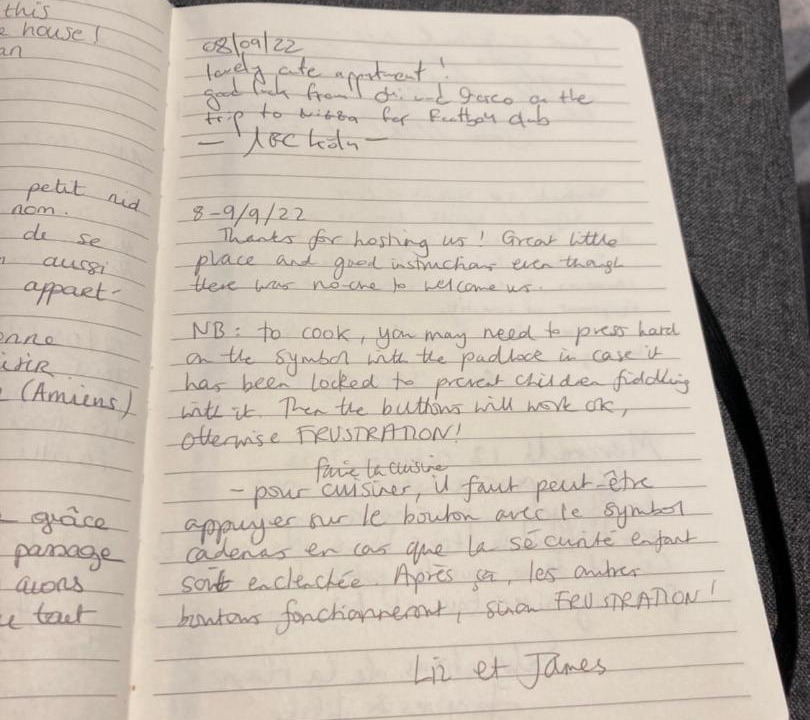 this
house!
an
petit nid
nom.
de se
aussi
appart-
(Amiens)
grâce
passage
avons
tout
08/09/22
lovely cute appartment!
good luck from and on the
trip to for football club
8-9/9/22
Thanks for hosting us! Great little
place and good instructions even though
there was no-one to welcome us.
NB: to cook, you may need to press hard
on the symbol with the padlock in case it
has been locked to prevent children fiddling
with it. Then the buttons will work ok,
otherwise FRUSTRATION!
faire la cuisine
- pour cuisiner, il faut peut-être
appuyer sur le bouton avec le symbol
cadenas en cas que la sécurité enfant
soit enclenchée. Après ça, les autres
boutons fonctionneront, sinon FRUSTRATION!
Liz et James